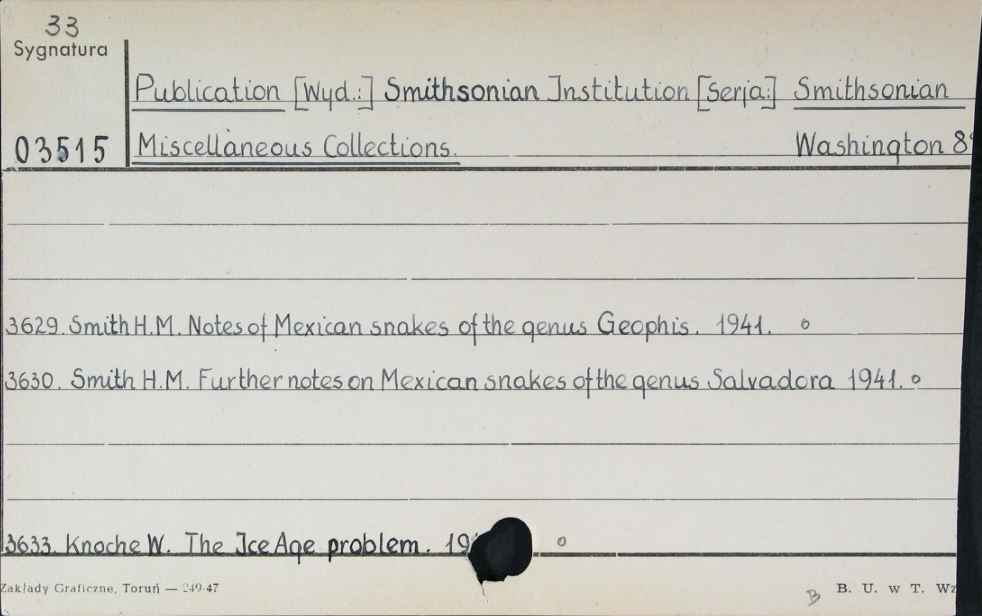 33
Sygnatura
Publication [Wyd.:] Smithsonian Institution [Serja:] Smithsonian
03515 Miscellaneous Collections. Washington 8°
3629. Smith H.M. Notes of Mexican snakes of the genus Geophis. 1941. o
3630. Smith H.M. Further notes on Mexican snakes of the genus Salvadora 1941. o
3633. Knoche W. The Ice Age problem. 19 o
Zakłady Graficzne, Toruń — 249-47 B B. U. w T. Wz